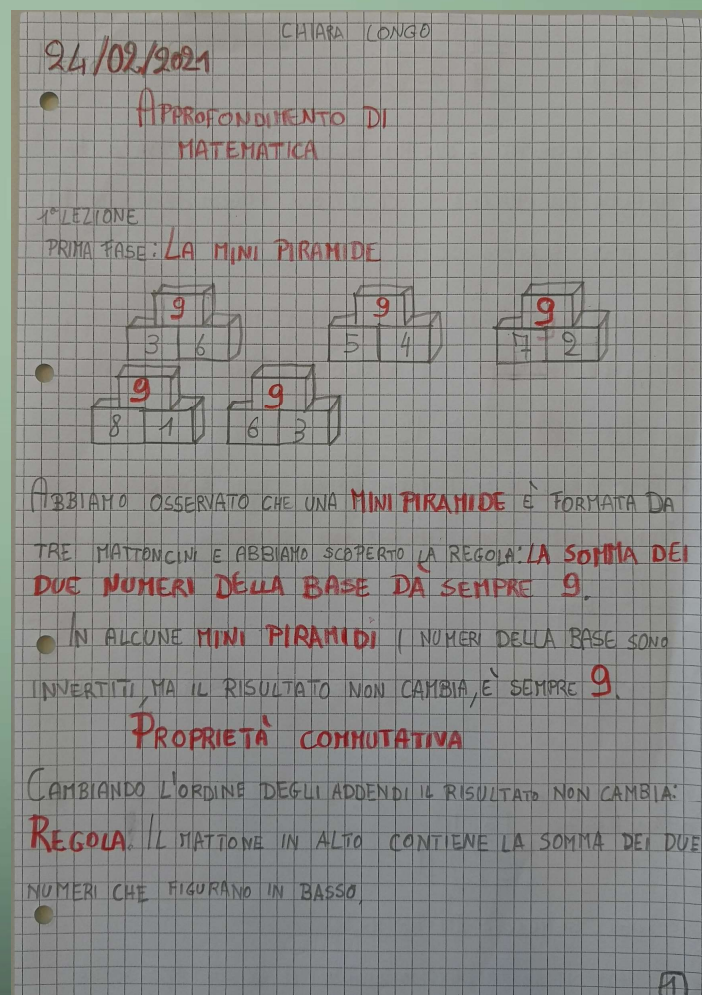 CHIARA LONGO
24/02/2021
APPROFONDIMENTO DI
MATEMATICA
1° LEZIONE
PRIMA FASE: LA MINI PIRAMIDE
9 9 9
3 6 5 4 7 2
9 9
8 1 6 3
ABBIAMO OSSERVATO CHE UNA MINI PIRAMIDE È FORMATA DA
TRE MATTONCINI E ABBIAMO SCOPERTO LA REGOLA: LA SOMMA DEI
DUE NUMERI DELLA BASE DÀ SEMPRE 9.
IN ALCUNE MINI PIRAMIDI I NUMERI DELLA BASE SONO
INVERTITI, MA IL RISULTATO NON CAMBIA, È SEMPRE 9.
PROPRIETÀ COMMUTATIVA
CAMBIANDO L'ORDINE DEGLI ADDENDI IL RISULTATO NON CAMBIA:
REGOLA: IL MATTONE IN ALTO CONTIENE LA SOMMA DEI DUE
NUMERI CHE FIGURANO IN BASSO,
1